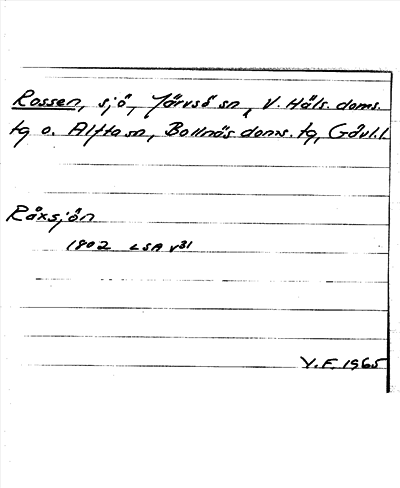 Rossen, sjö, Järvsö sn, V. Häls. doms.
tg o. Alfta sn, Bollnäs doms. tg, Gävl. l
Råxsjön
1802 LSA V31
V. F. 1965